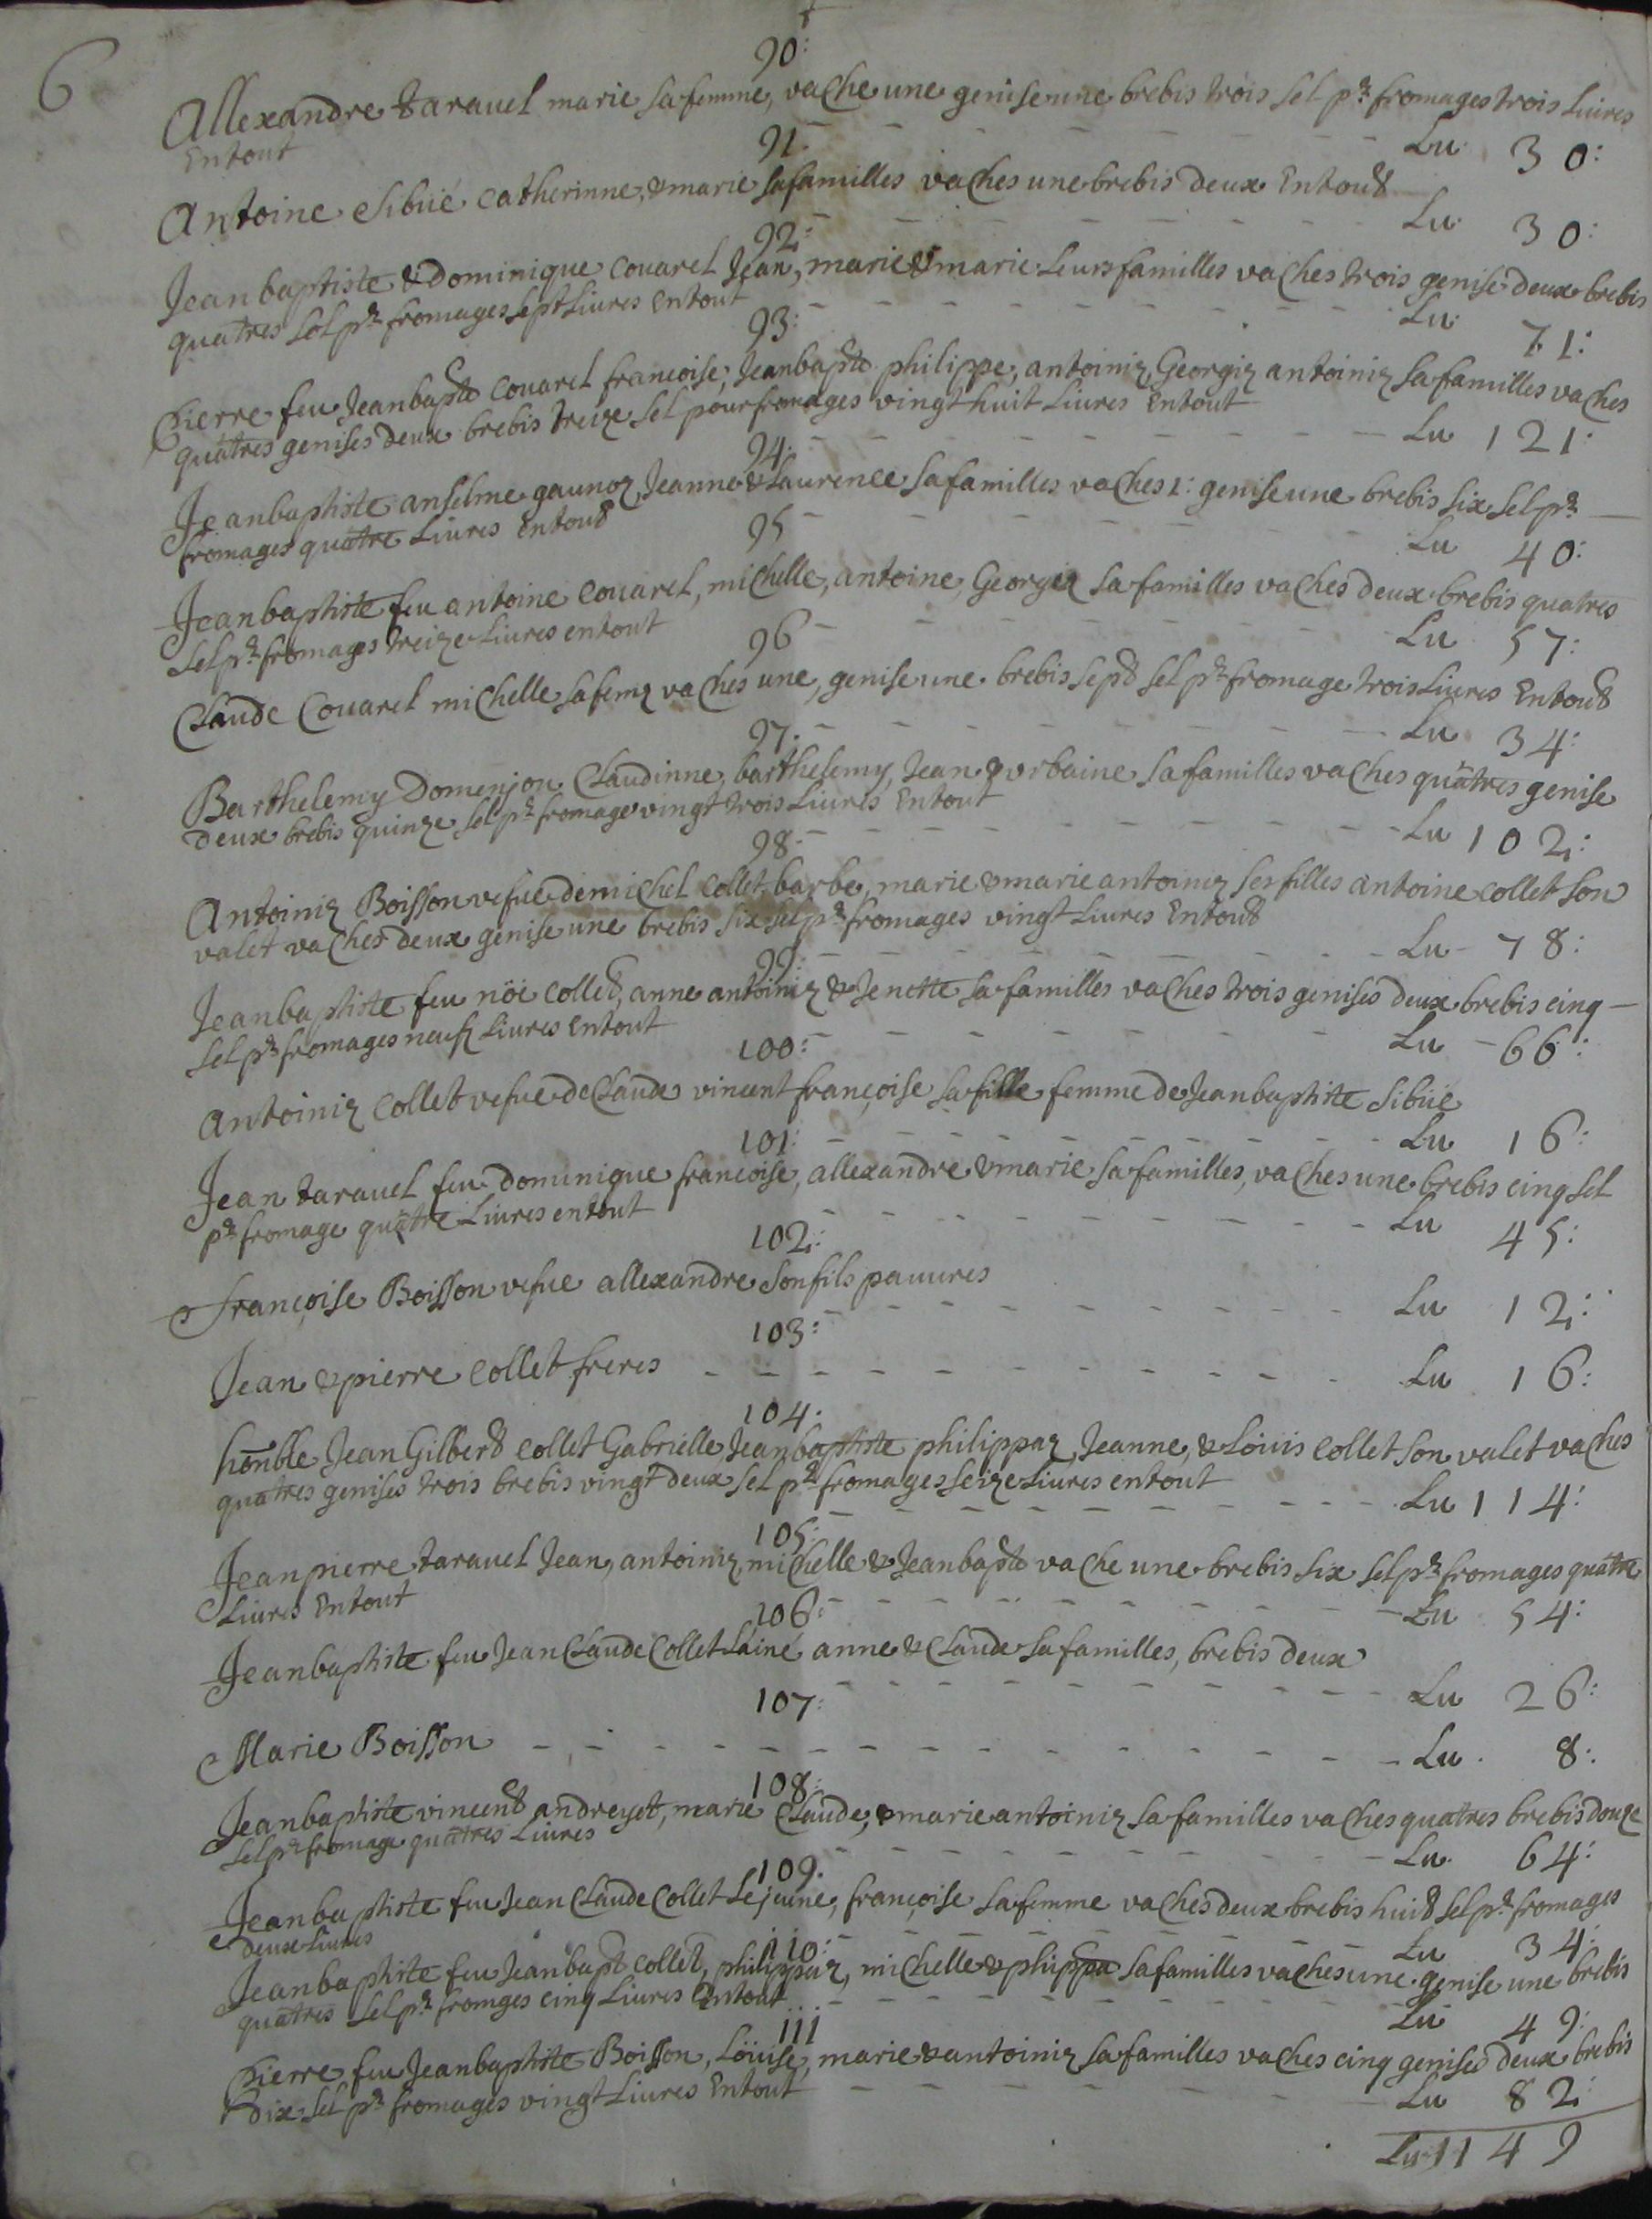 6
90:
Allexandre taravel marie sa femme, vache une genise une brebis trois sel pr fromages trois Livres
Entout Lu 30:
91:
Antoine Sibüé Catherinne, & marie sa familles vaches une brebis deux Entout
Lu 30:
92:
Jean baptiste & Dominique Couarel Jean, marie & marie Leurs familles vaches trois genise deux brebis
quatres sel pr fromages sept Livres Entout Lu 71:
93:
Pierre feu Jean bapte Couarel francoise, Jean bapte philippe, antoiniz Georgiz antoiniz sa familles vaches
quatres genises deux brebis treize sel pour fromages vingt huit Livres Entout Lu 121:
94:
Jean baptiste anselme gaunoz, Jeanne & Laurence sa familles vaches 1: genise une brebis six sel pr
fromages quatre Livres Entout Lu 40:
95
Jean baptiste feu antoine Couarel, michelle, antoine, Georgiz sa familles vaches deux brebis quatres
sel pr fromages treize Livres entout Lu 57:
96
Claude Couarel michelle sa femz vaches une, genise une brebis sept sel pr fromage trois Livres Entout
Lu 34:
97:
Barthelemy Domenjon Claudinne, barthelemy, Jean & vrbaine sa familles vaches quatres genise
deux brebis quinze sel pr fromage vingt trois Livres Entout Lu 102:
98:
Antoiniz Boisson vefue de michel Collet, barbe, marie & marie antoiniz ses filles antoine collet son
valet vaches deux genise une brebis six sel pr fromages vingt Livres Entout Lu 78:
99:
Jean baptiste feu nöe collet, anne antoiniz & Jenette sa familles vaches trois genises deux brebis cinq
sel pr fromages neufz Livres Entout Lu 66:
100:
Antoiniz Collet vefue de Claude vincent françoise sa fille femme de Jean baptiste Sibüé
Lu 16:
101:
Jean taravel feu Dominique francoise, allexandre & marie sa familles, vaches une brebis cinq sel
pr fromage quatre Livres entout Lu 45:
102:
françoise Boisson vefue allexandre son fils pauures Lu 12:
103:
Jean & pierre Collet freres Lu 16:
104:
honble Jean Gilbert Collet Gabrielle, Jean baptiste philippaz, Jeanne, & Loüis Collet son valet vaches
quatres genises trois brebis vingt deux sel pr fromages seize Livres entout Lu 114:
105:
Jean pierre taravel Jean, antoiniz, michelle & Jean bapte vache une brebis six sel pr fromages quatre
Livres Entout Lu 54:
106:
Jean baptiste feu Jean Claude Collet Láiné anne & Claude sa familles, brebis deux
Lu 26:
107:
Marie Boisson Lu 8:
108:
Jean baptiste vincent andreyet, marie Claude, & marie antoiniz sa familles vaches quatres brebis douze
sel pr fromage quatres Livres Lu 64:
109:
Jean baptiste feu Jean Claude Collet Le jeune, françoise sa femme vaches deux brebis huit sel pr fromages
deux Livres Lu 34:
110:
Jean baptiste feu Jean bapt collet, philippaz, michelle & sa familles vaches une genise une brebis
quatres sel pr fromges cinq Livres Entout Lu 49:
111
Pierre feu Jean baptiste Boisson, Loüise, marie & antoiniz sa familles vaches cinq genises deux brebis
Dix sel pr fromages vingt Livres Entout Lu 82:
Lu 1149